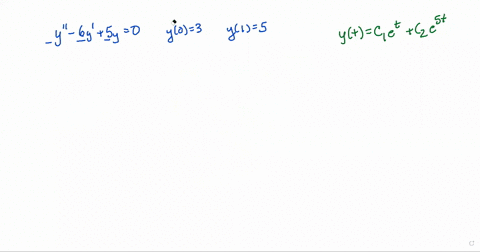 y'' - 6y' + 5y = 0 y(0) = 3 y(1) = 5 y(t) = C₁e^t + C₂e^{5t}